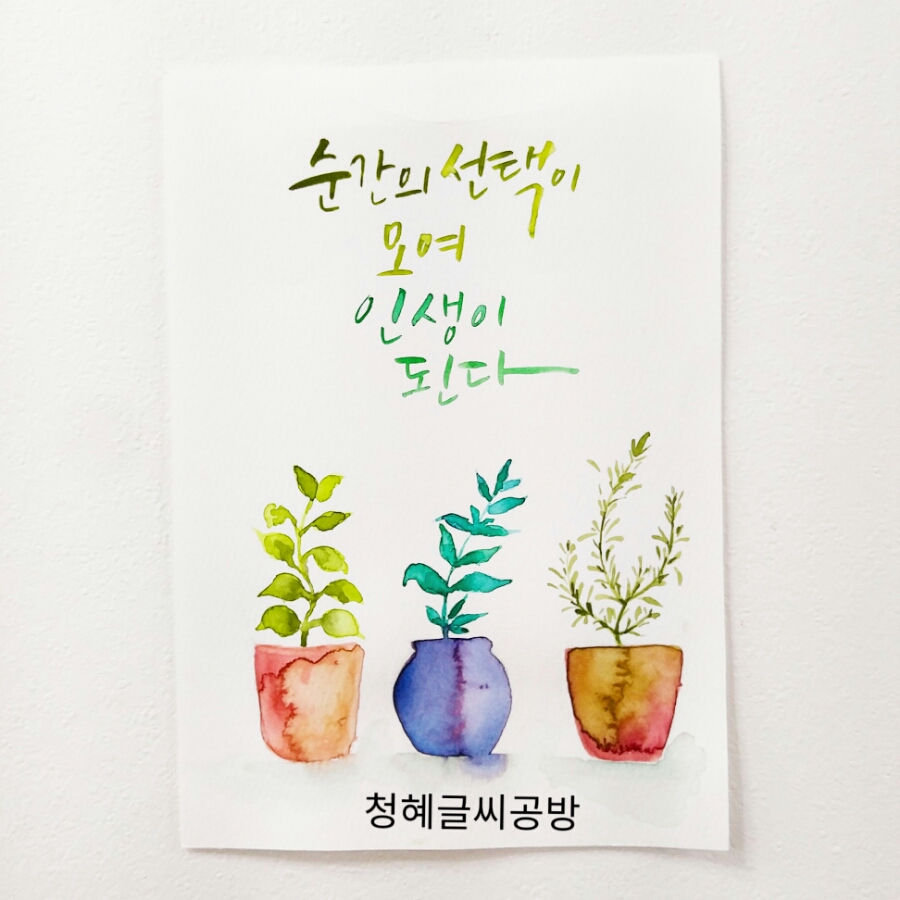 순간의 선택이
모여
인생이
된다
청혜글씨공방